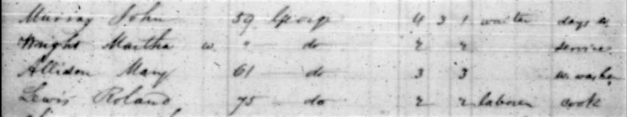 Murray John 59 George 4 3 1 waiter days w.
Wright Martha w " do 2 2 service
Allison Mary 61 do 3 3 w. washer
Lewis Roland 75 do 2 2 laborer cook